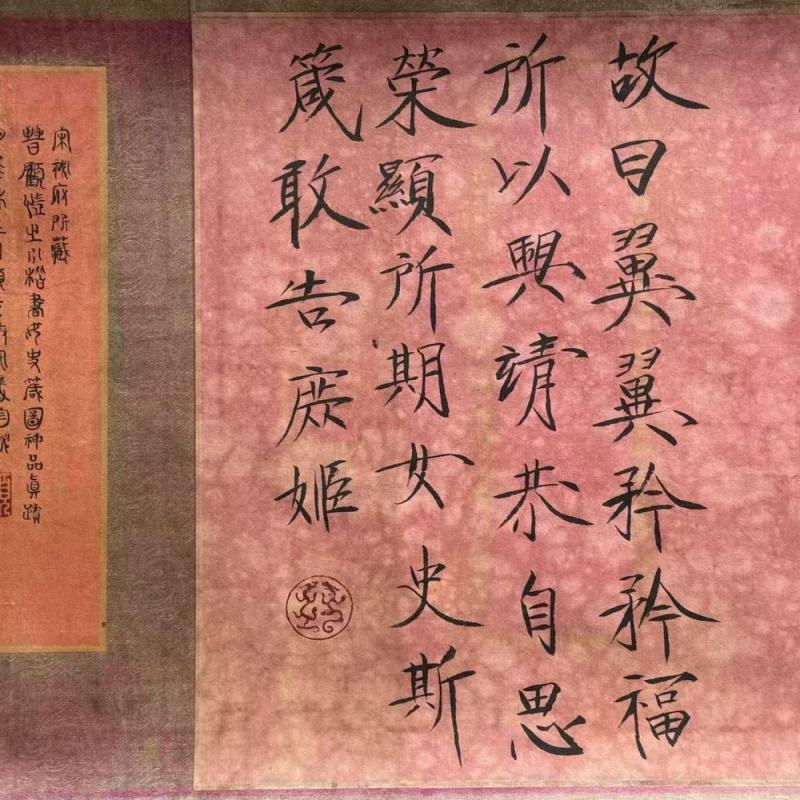 故曰翼翼矜矜福
所以興靖恭自思
榮顯所期女史斯
箴敢告庶姬
宋祕府所藏
晉顧愷之小楷書女史箴圖神品眞蹟